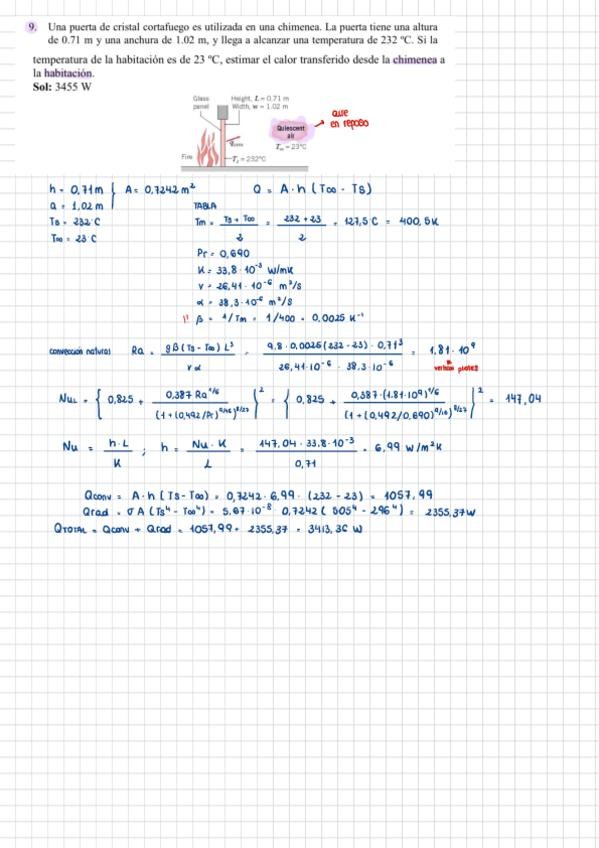 9. Una puerta de cristal cortafuego es utilizada en una chimenea. La puerta tiene una altura
de 0.71 m y una anchura de 1.02 m, y llega a alcanzar una temperatura de 232 ºC. Si la
temperatura de la habitación es de 23 ºC, estimar el calor transferido desde la chimenea a
la habitación.
Sol: 3455 W
Glass panel
Height, L = 0.71 m
Width, w = 1.02 m
Quiescent air
que en reposo
T∞ = 23°C
Fire
Ts = 232°C
h = 0,71m } A = 0,7242 m² Q = A·h (T∞ - Ts)
a = 1,02m
Ts = 232°C
T∞ = 23°C
TABLA
Tm = (Ts + T∞)/2 = (232 + 23)/2 = 127,5°C = 400,5K
Pr = 0,690
K = 33,8·10⁻³ W/mK
v = 26,41·10⁻⁶ m²/s
α = 38,3·10⁻⁶ m²/s
!! β = 1/Tm = 1/400 = 0,0025 K⁻¹
convección natural Ra = gβ(Ts - T∞) L³ / vα = 9,8·0,0025(232 - 23)·0,71³ / 26,41·10⁻⁶ · 38.3·10⁻⁶ = 1,81·10⁹
plates
NuL = { 0,825 + 0,387 Ra^1/6 / (1+(0,492/Pr)^9/16)^8/27 }² = { 0,825 + 0,387·(1.81·10⁹)^1/6 / (1+(0,492/0,690)^9/16)^8/27 }² = 147,04
Nu = h·L / K ; h = Nu·K / L = 147,04·33,8·10⁻³ / 0,71 = 6,99 W/m²K
Qconv = A·h (Ts - T∞) = 0,7242·6,99·(232 - 23) = 1057,99
Qrad = σ A (Ts⁴ - T∞⁴) = 5,67·10⁻⁸·0,7242 (505⁴ - 296⁴) = 2355,37W
QTOTAL = Qconv + Qrad = 1057,99 + 2355,37 = 3413,36 W